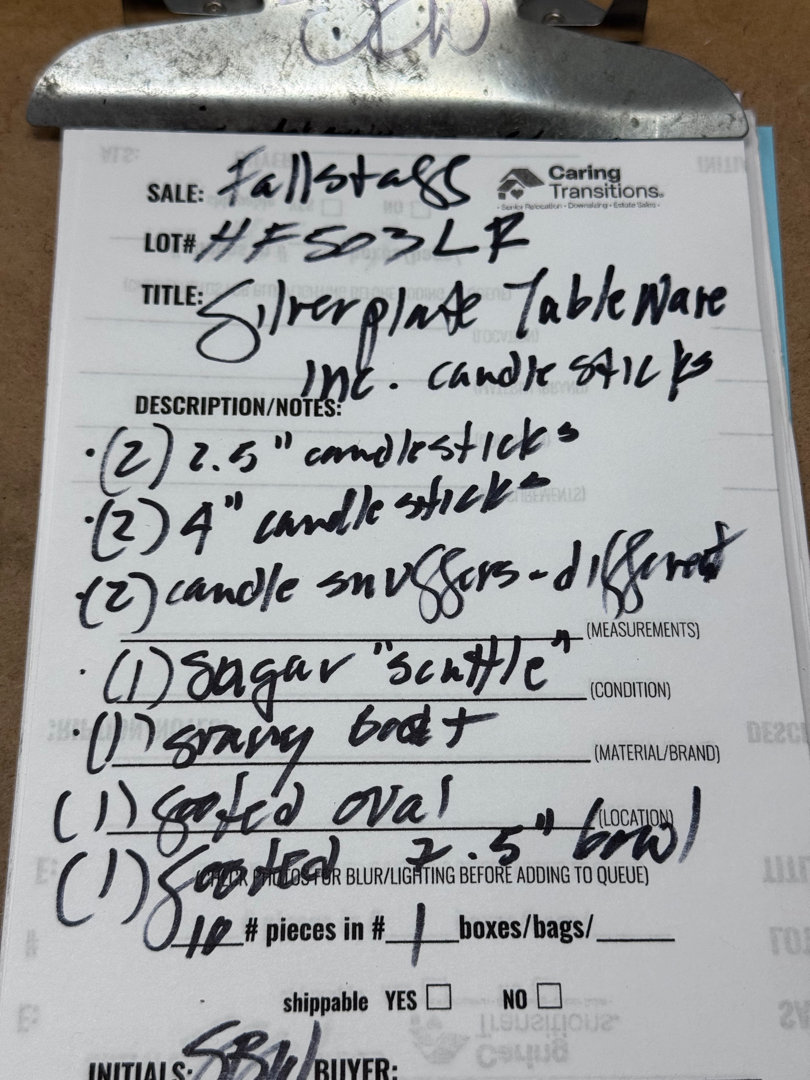 SALE: Fallstaff
Caring
Transitions.
• Senior Relocation • Downsizing • Estate Sales •
LOT# HF503LR
TITLE: Silverplate TableWare
inc. candlesticks
DESCRIPTION/NOTES:
• (2) 2.5" candlesticks
• (2) 4" candlesticks
• (2) candle snuffers - different
(MEASUREMENTS)
• (1) Sugar "scuttle"
(CONDITION)
• (1) gravy boat
(MATERIAL/BRAND)
(1) footed oval
(LOCATION)
(1) footed 7.5" bowl
PHOTOS FOR BLUR/LIGHTING BEFORE ADDING TO QUEUE)
10 # pieces in # 1 boxes/bags/
shippable YES ☐ NO ☐
INITIALS: SBW BUYER: